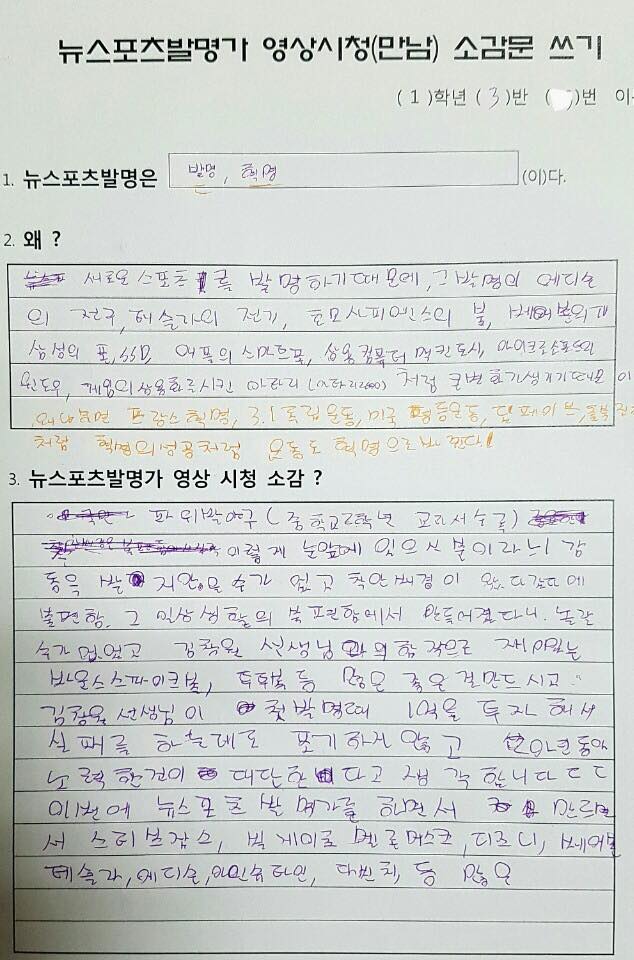 뉴스포츠발명가 영상시청(만남) 소감문 쓰기
( 1 )학년 ( 3 )반 ( )번 이
1. 뉴스포츠발명은 발명, 혁명 (이)다.
2. 왜 ?
새로운 스포츠를 발명하기 때문에, 그 발명의 에디슨
의 전구, 테슬라의 전기, 호모사피엔스의 불,
삼성의 애플의 스마트폰, 상용컴퓨터 매킨토시, 마이크로소프트의
윈도우, 게임의 상용화를 시킨 아타리(아타리2600) 처럼 큰변화가 생기기 때문이
왜냐하면 프랑스 혁명, 3.1 독립운동, 미국 운동,
처럼 혁명의 성공처럼 운동도 혁명으로 바뀐다!
3. 뉴스포츠발명가 영상 시청 소감 ?
파워발야구 (중학교2학년 교과서수록)
이렇게 눈앞에 있으신 분이라니 감
동을 받지안을 수가 없고 착안배경이 왔다갔다에
불편함, 그 일상생활의 불편함에서 만들어졌다니. 놀랄
수가 없었고 김창원 선생님과의 합작으로 재미있는
바운스스파이크볼, 투투볼 등 많은 좋은 걸 만드시고
김창원 선생님이 첫발명때 1억을 투자해서
실패를 하는데도 포기하지 않고 20년동안
노력한건이 대단한다고 생각합니다 ㄷㄷ
이번에 뉴스포츠 발명가를 하면서 만드면
서 스티브잡스, 빌게이츠 멘로머스크, 디즈니, 브레어먼
테슬라, 에디슨, 아인슈타인, 다빈치, 등 많은